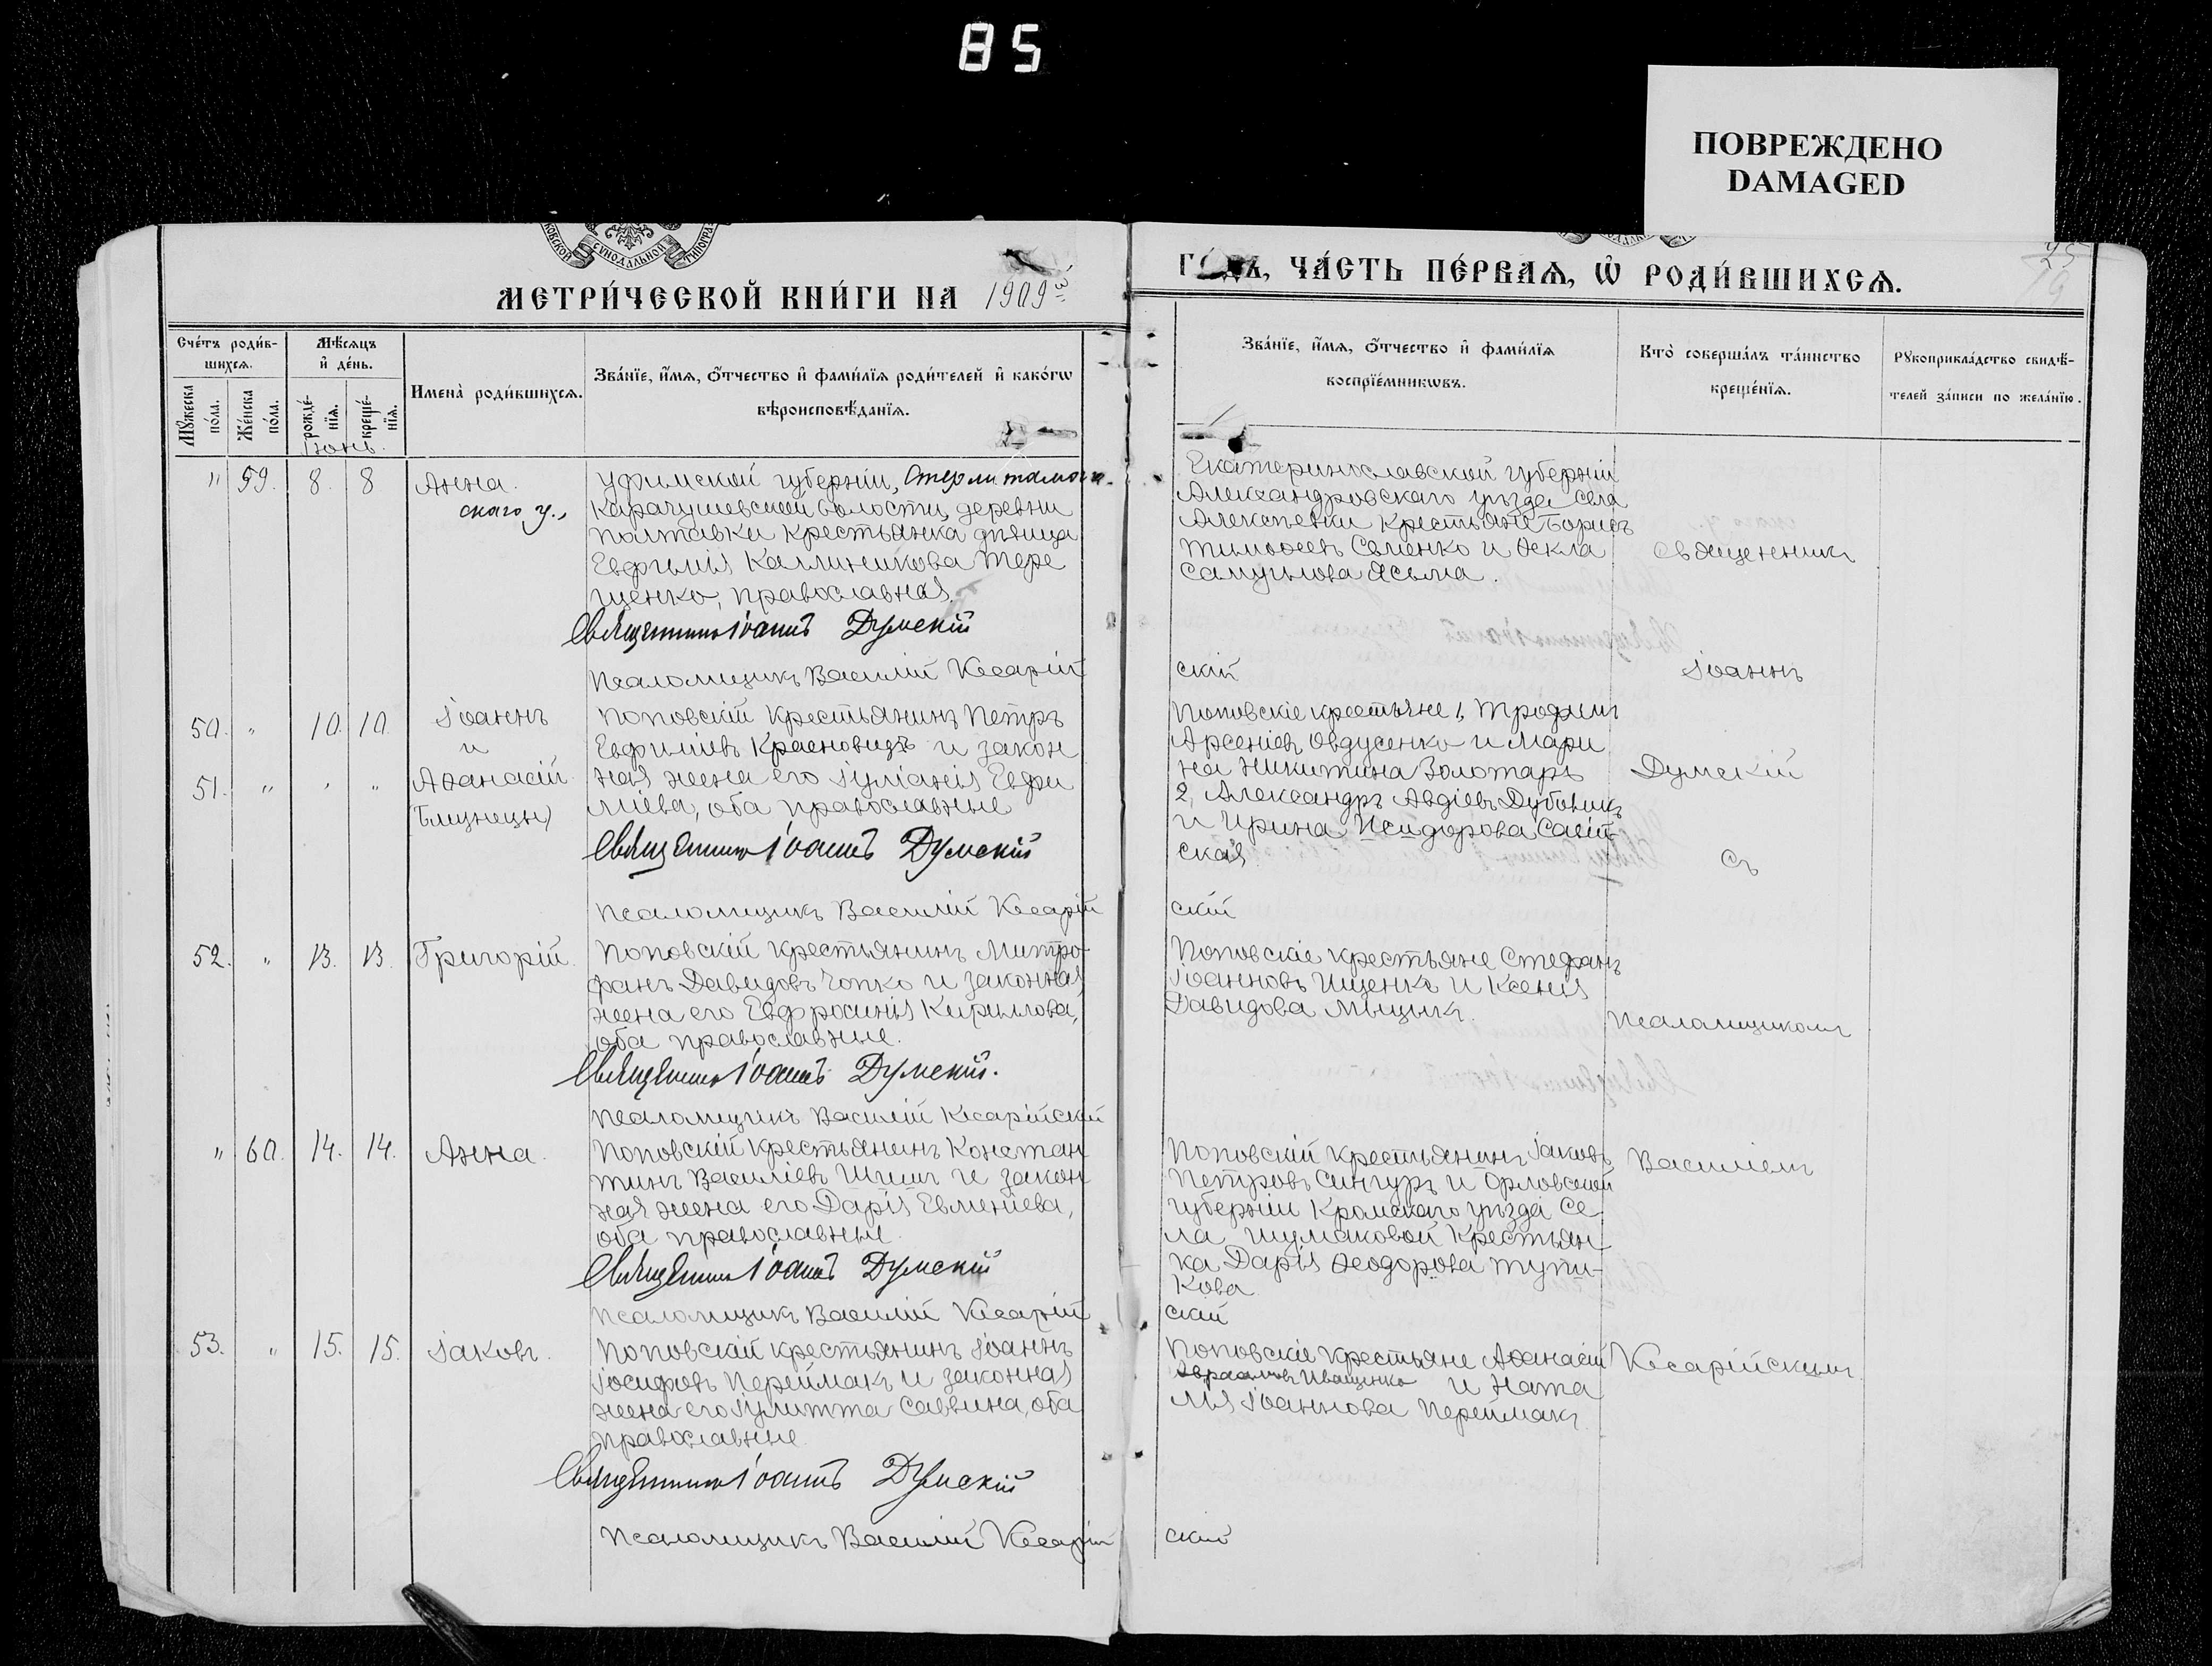 85
ПОВРЕЖДЕНО
DAMAGED
МЕТРИ́ЧЕСКОЙ КНИ́ГИ НА 1909й
ГО́ДЪ, ЧА́СТЬ ПЕ́РВАѦ, Ѡ҆ РОДИ́ВШИХСѦ.
25
Сче́тъ роди́в-
шихсѧ.
Мꙋ́жеска по́ла.
Же́нска по́ла.
Мѣ́сѧцъ и҆ де́нь.
рожде́-
нїѧ.
креще́-
нїѧ.
Имена̀ роди́вшихсѧ.
Зва́нїе, и҆́мѧ, ѻ҆́тчество и҆ фами́лїѧ роди́телей и҆ како́гѡ
вѣроисповѣ́данїѧ.
Зва́нїе, и҆́мѧ, ѻ҆́тчество и҆ фами́лїѧ
воспрїе́мникѡвъ.
Кто̀ соверша́лъ та́инство
креще́нїѧ.
Рꙋкоприкла́дство свидѣ́-
телей за́писи по жела́нїю.
Іюнь.
" 59. 8. 8 Анна.
Уфимской губерніи, Стерлитамак-
скаго у., Карагушевской волости, деревни
Полтавки крестьянка дѣвица
Евфимія Каллиникова Тере
щенко, православная.
Священникъ Іоаннъ Думскій
Псаломщикъ Василій Кесарій
скій
Екатеринославской губерніи
Александровскаго уѣзда села
Алексѣевки крестьяне Борисъ
Тимоѳеевъ Семенко и Ѳекла
Самуилова Ясьма.
Священникъ
Іоаннъ
50. " 10. 10. Іоаннъ
и
51. " " " Аѳанасій
(близнецы)
Поповскій крестьянинъ Петръ
Евфиміевъ Красновидъ и закон
ная жена его Іуліанія Евфи
міева, оба православные
Священникъ Іоаннъ Думскій
Псаломщикъ Василій Кесарій
скій
Поповскіе крестьяне 1, Трофимъ
Арсеніевъ Овдусенко и Мари
на Никитина Золотарь
2, Александръ Авдіевъ Дубовикъ
и Ирина Исидорова Савій-
ская
Думскій
съ
52. " 13. 13. Григорій.
Поповскій крестьянинъ Митро-
фанъ Давидовъ Чопко и законная
жена его Евфросинія Кириллова,
оба православные.
Священникъ Іоаннъ Думскій.
Псаломщикъ Василій Кесарійскій
Поповскіе крестьяне Стефанъ
Іоанновъ Ищенко и Ксенія
Давидова Мыцыкъ.
Псаломщикомъ
" 60. 14. 14. Анна.
Поповскій крестьянинъ Констан
тинъ Василіевъ Шишъ и закон
ная жена его Дарія Евменіева,
оба православные
Священникъ Іоаннъ Думскій
Псаломщикъ Василій Кесарій
скій
Поповскій крестьянинъ Іаковъ
Петровъ Сингуръ и Орловской
губерніи Кромскаго уѣзда се
ла Шумаковой крестьян
ка Дарія Ѳеодорова Тупи-
кова
Василіемъ
53. " 15. 15. Іаковъ.
Поповскій крестьянинъ Іоаннъ
Іосифовъ Переймакъ и законная
жена его Іулитта Саввина, оба
православные
Священникъ Іоаннъ Думскій
Псаломщикъ Василій Кесарій
скій
Поповскіе крестьяне Аѳанасій
Авраамовъ Иващенко и Ната
лія Іоаннова Переймакъ
Кесарійскимъ.